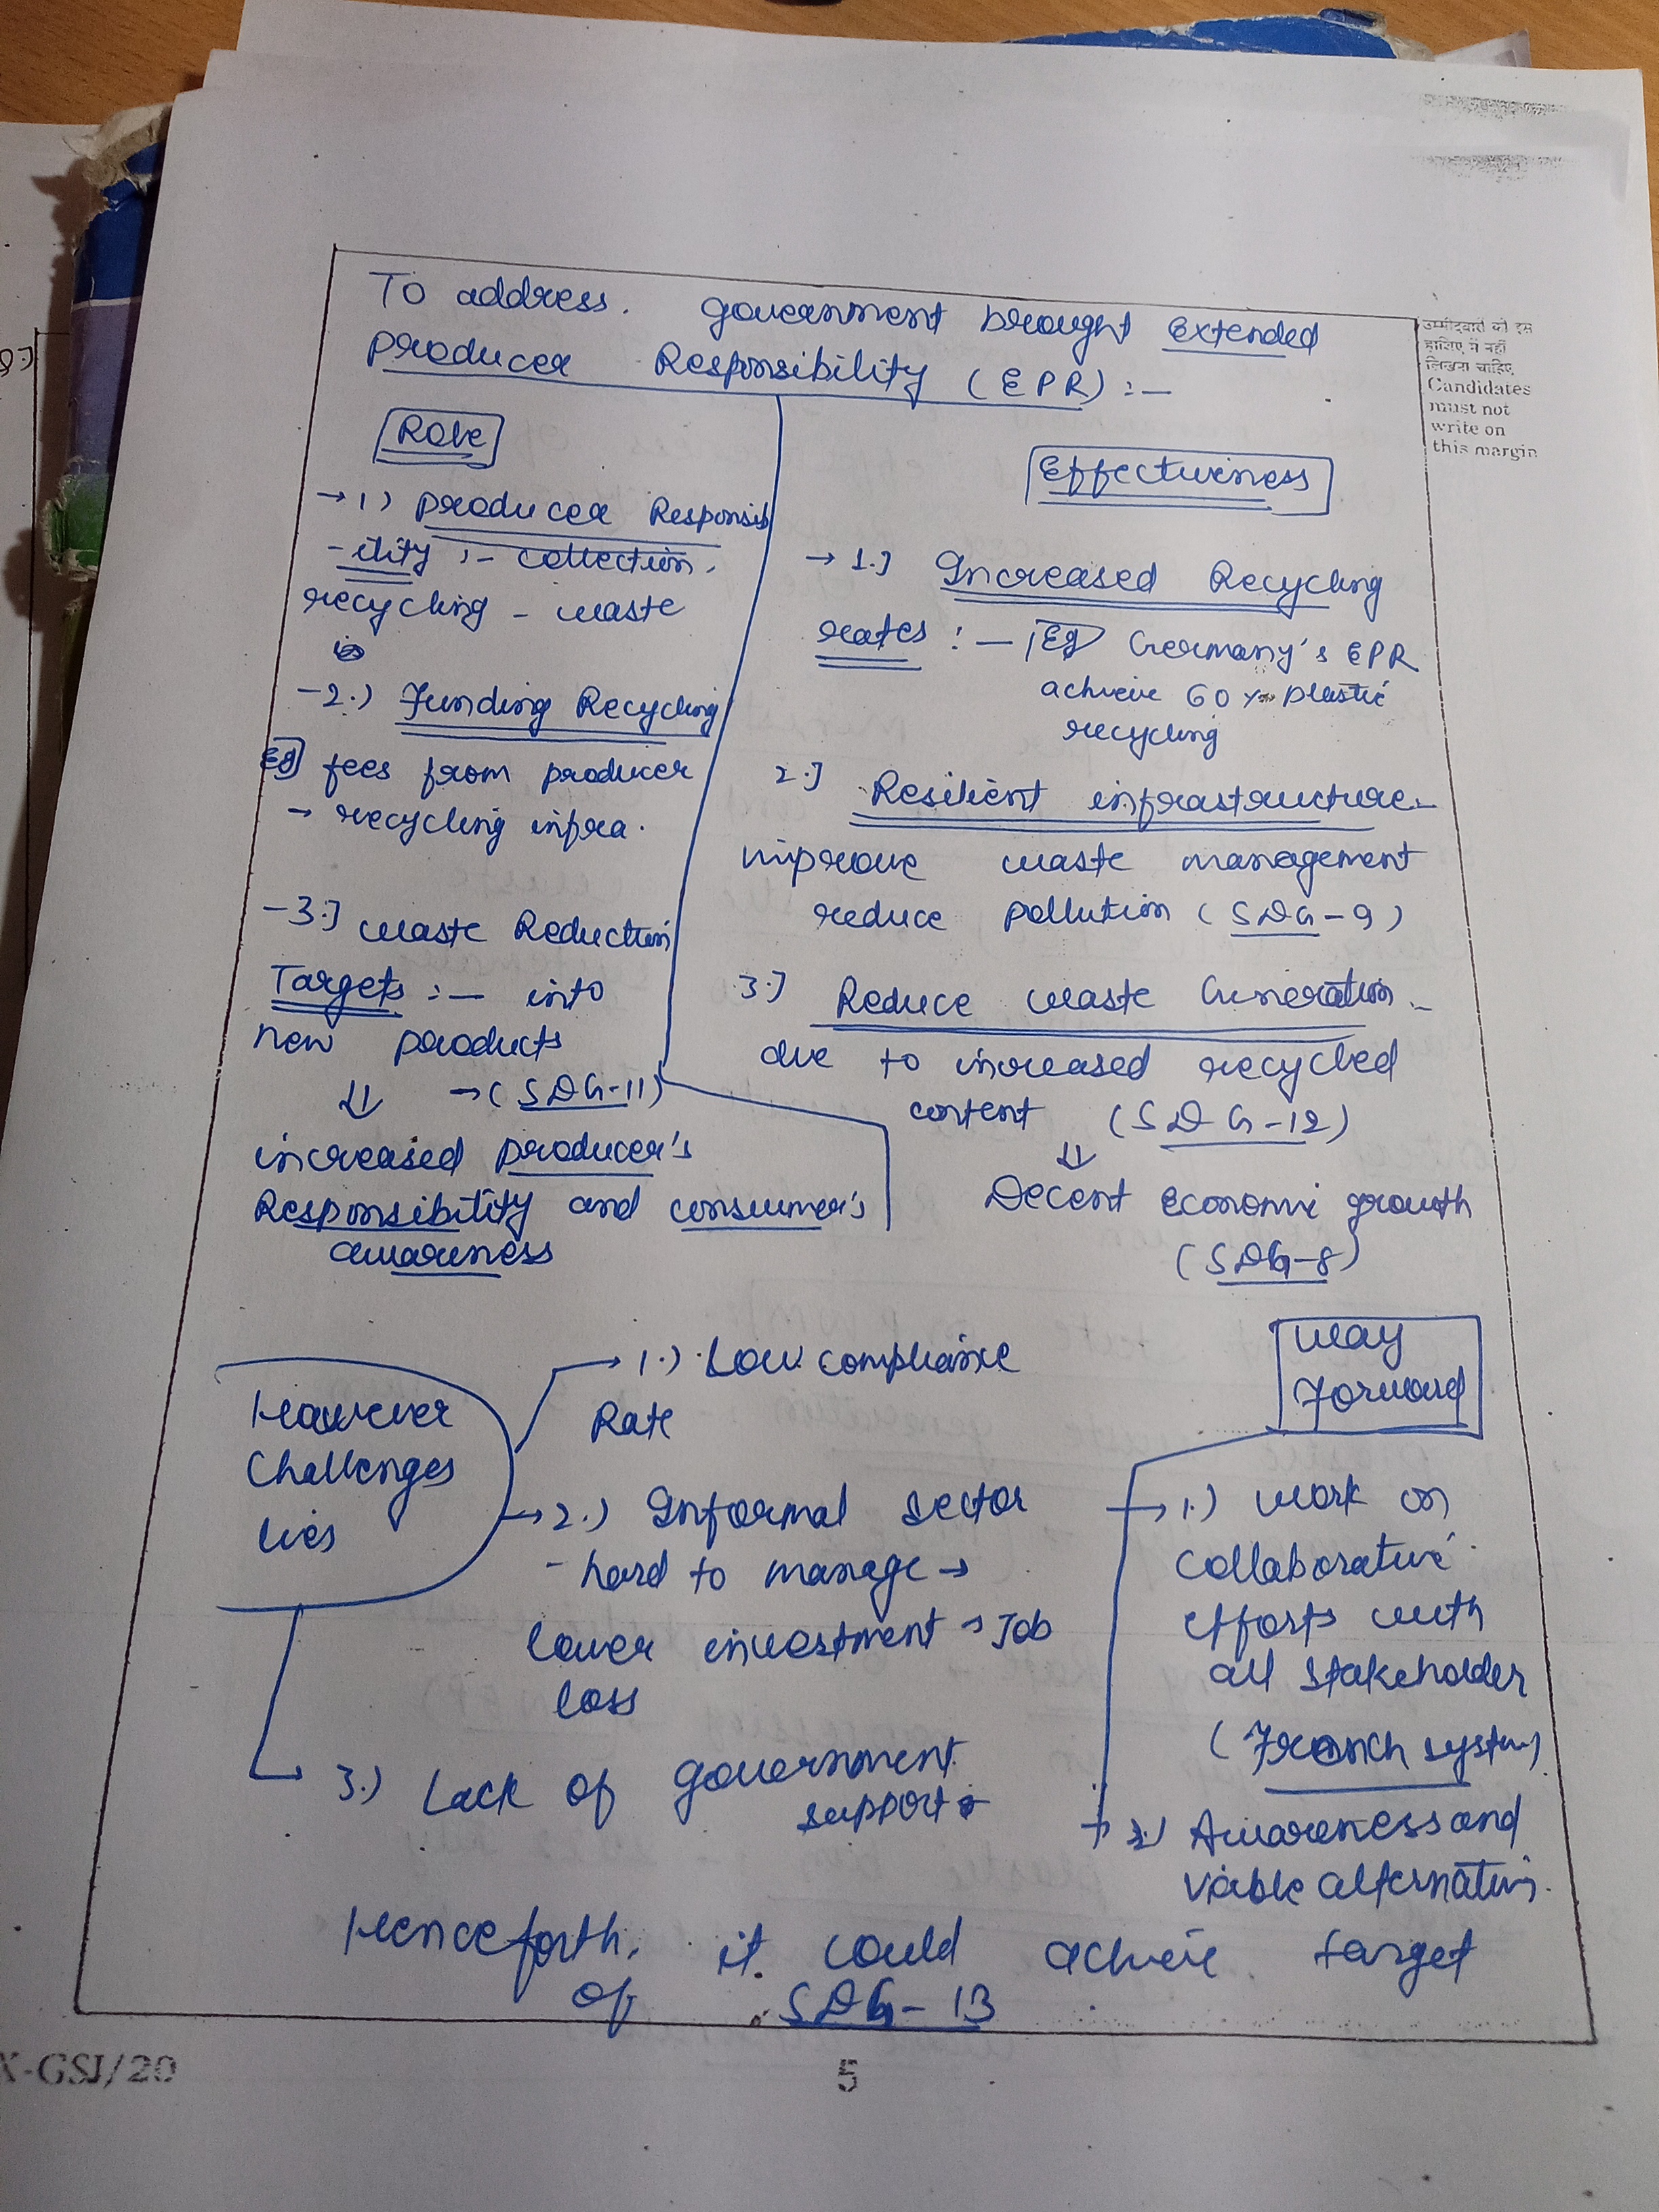 To address. government brought Extended
Producer Responsibility (EPR) :-
Role
→ 1) Producer Responsib
-ility :- collection,
recycling - waste
-2.) Funding Recycling
Eg fees from producer
→ recycling infra.
-3.) waste Reduction
Targets :- into
new products
⇓ → (SDG-11)
increased producer's
Responsibility and consumer's
awareness
Effectiveness
→ 1.) Increased Recycling
rates :- Eg Germany's EPR
achieve 60 % plastic
recycling
2.) Resilient infrastructure -
improve waste management
reduce pollution (SDG-9)
3.) Reduce waste Generation -
due to increased recycled
content (SDG-12)
⇓
Decent Economic growth
(SDG-8)
However
Challenges
lies
→ 1.) Low compliance
Rate
→ 2.) Informal sector
- hard to manage →
lower investment → Job
loss
3.) Lack of government
support
Way
Forward
→ 1.) Work on
collaborative
efforts with
all stakeholder
(French system)
→ 2.) Awareness and
viable alternatives.
Henceforth, it could achieve target
of SDG-13
उम्मीदवारों को इस
हाशिए में नहीं
लिखना चाहिए
Candidates
must not
write on
this margin
X-GSJ/20
5